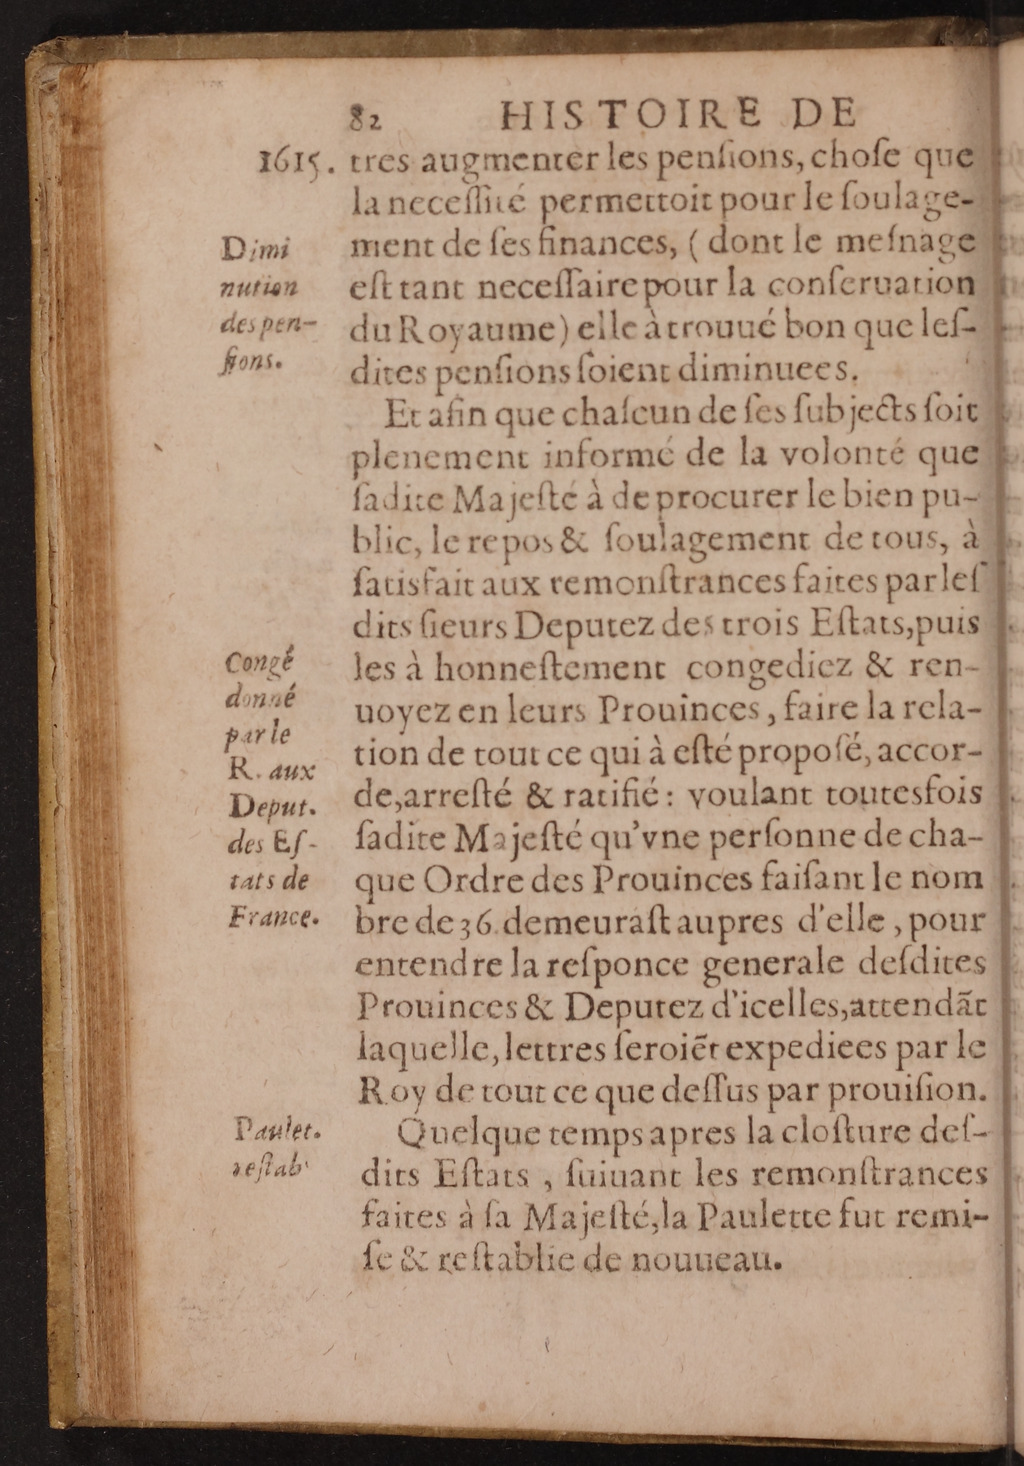 82 HISTOIRE DE
1615. tres augmenter les penſions, choſe que
la neceſſité permettoit pour le ſoulage-
ment de ſes finances, ( dont le meſnage
eſt tant neceſſaire pour la conſeruation
du Royaume) elle à trouué bon que leſ-
dites penſions ſoient diminuees.
Et afin que chaſcun de ſes ſubjects ſoit
plenement informé de la volonté que
ſadite Majeſté à de procurer le bien pu-
blic, le repos & ſoulagement de tous, à
ſatisfait aux remonſtrances faites par leſ
dits ſieurs Deputez des trois Eſtats, puis
les à honneſtement congediez & ren-
uoyez en leurs Prouinces, faire la rela-
tion de tout ce qui à eſté propoſé, accor-
de, arreſté & ratifié: voulant toutesfois
ſadite Majeſté qu'vne perſonne de cha-
que Ordre des Prouinces faiſant le nom
bre de 36. demeuraſt aupres d'elle, pour
entendre la reſponce generale deſdites
Prouinces & Deputez d'icelles, attendãt
laquelle, lettres ſeroiẽt expediees par le
Roy de tout ce que deſſus par prouiſion.
Quelque temps apres la cloſture deſ-
dits Eſtats, ſuiuant les remonſtrances
faites à ſa Majeſté, la Paulette fut remi-
ſe & reſtablie de nouueau.
Dimi
nution
des pen-
ſions.
Congé
donné
par le
R. aux
Deput.
des Eſ-
tats de
France.
Paulet.
reſtab